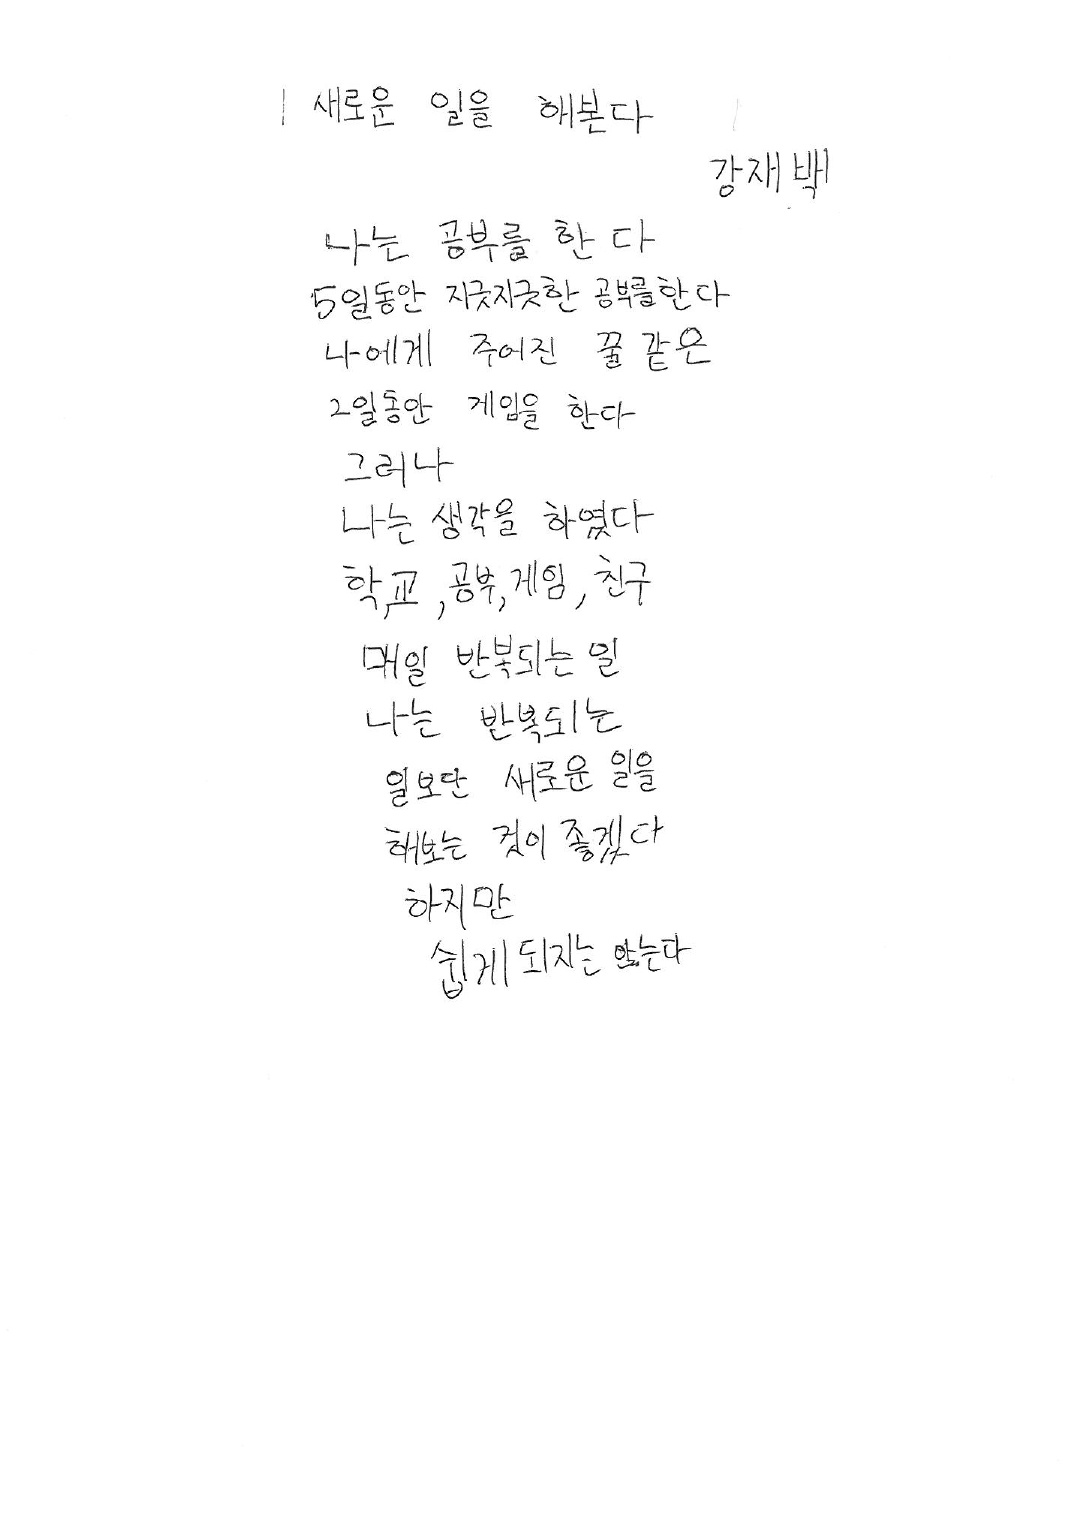 새로운 일을 해본다
강재백
나는 공부를 한다
5일동안 지긋지긋한 공부를한다
나에게 주어진 꿀같은
2일동안 게임을 한다
그러나
나는 생각을 하였다
학교, 공부, 게임, 친구
매일 반복되는 일
나는 반복되는
일보단 새로운 일을
해보는 것이 좋겠다
하지만
쉽게 되지는 않는다